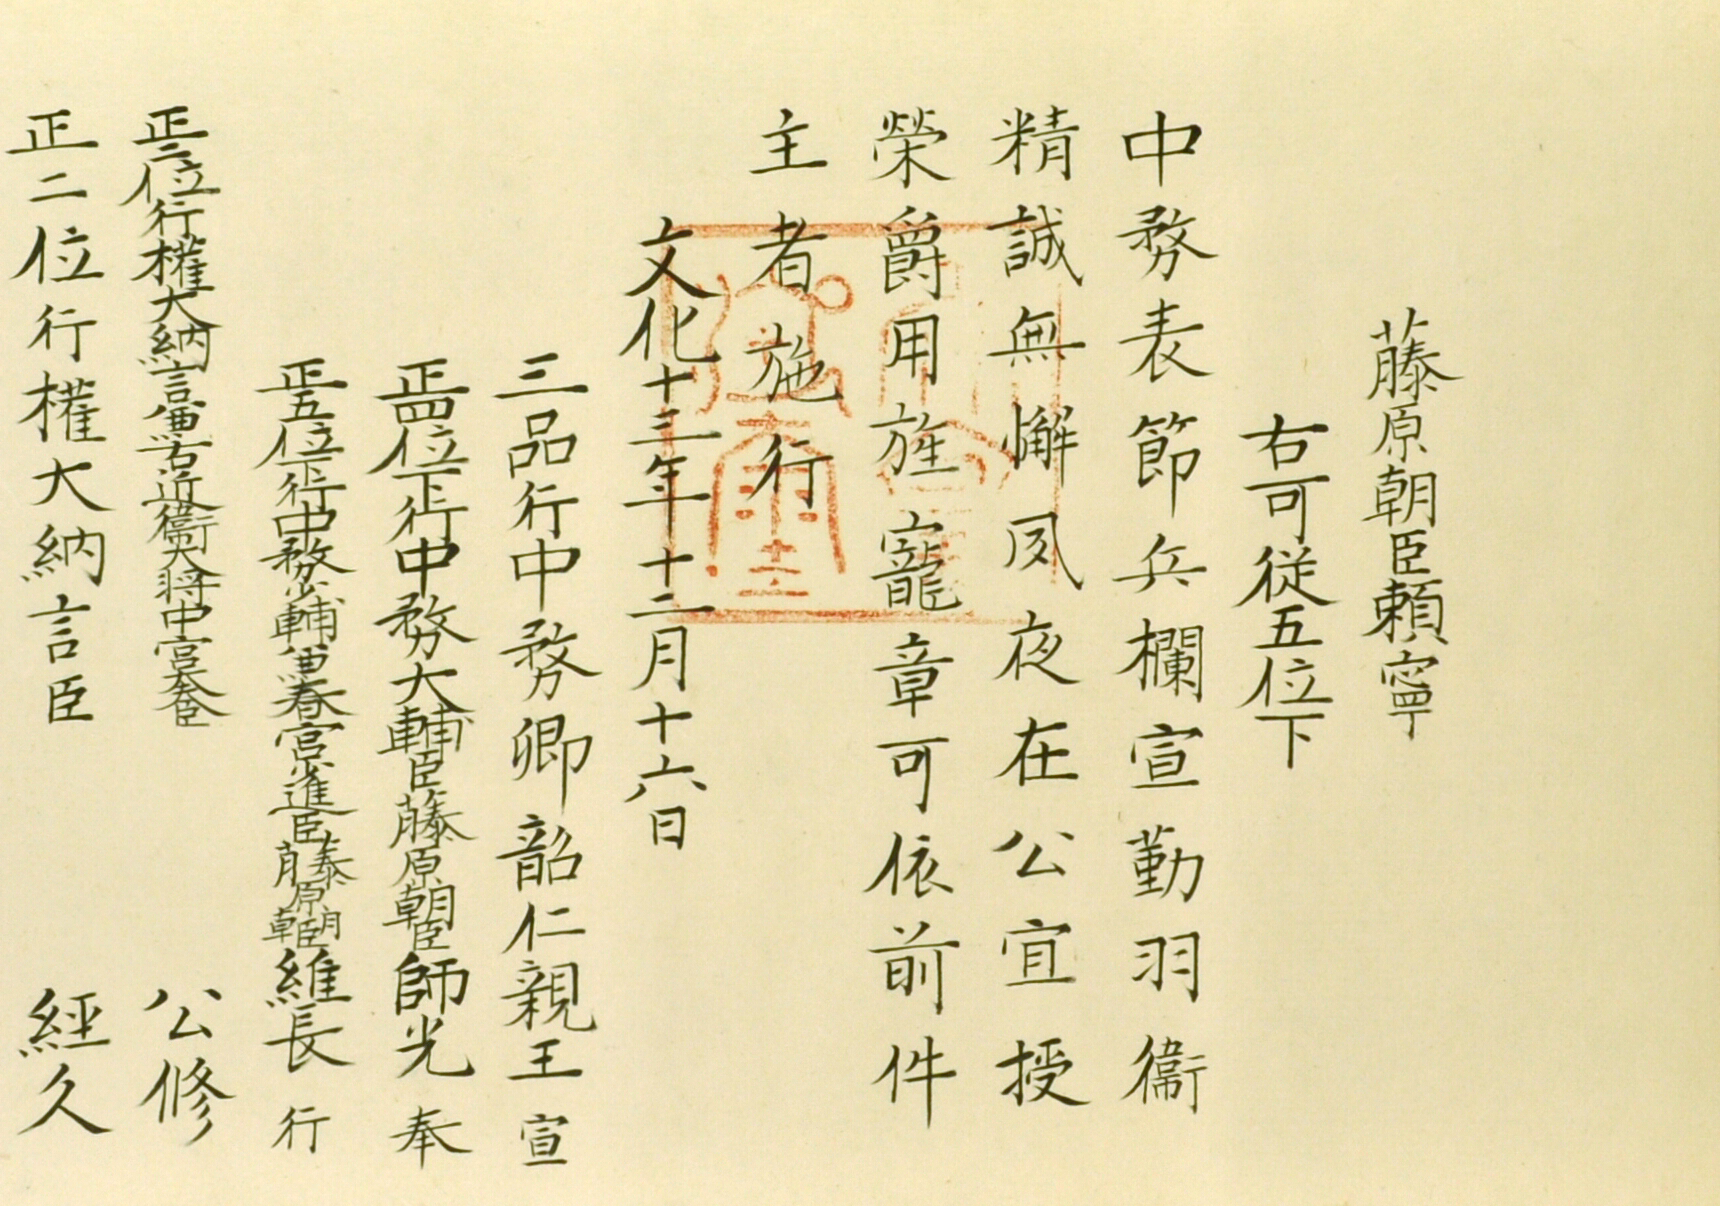 藤原朝臣頼寧
右可従五位下
中務表節兵欄宣勤羽衞
精誠無懈夙夜在公宜授
榮爵用旌寵章可依前件
主者施行
文化十三年十二月十六日
三品行中務卿韶仁親王宣
正四位下行中務大輔臣藤原朝臣師光奉
正五位下行中務少輔兼春宮少進臣藤原朝臣維長行
正二位行權大納言兼右近衞大将中宮大夫臣公修
正二位行權大納言臣經久